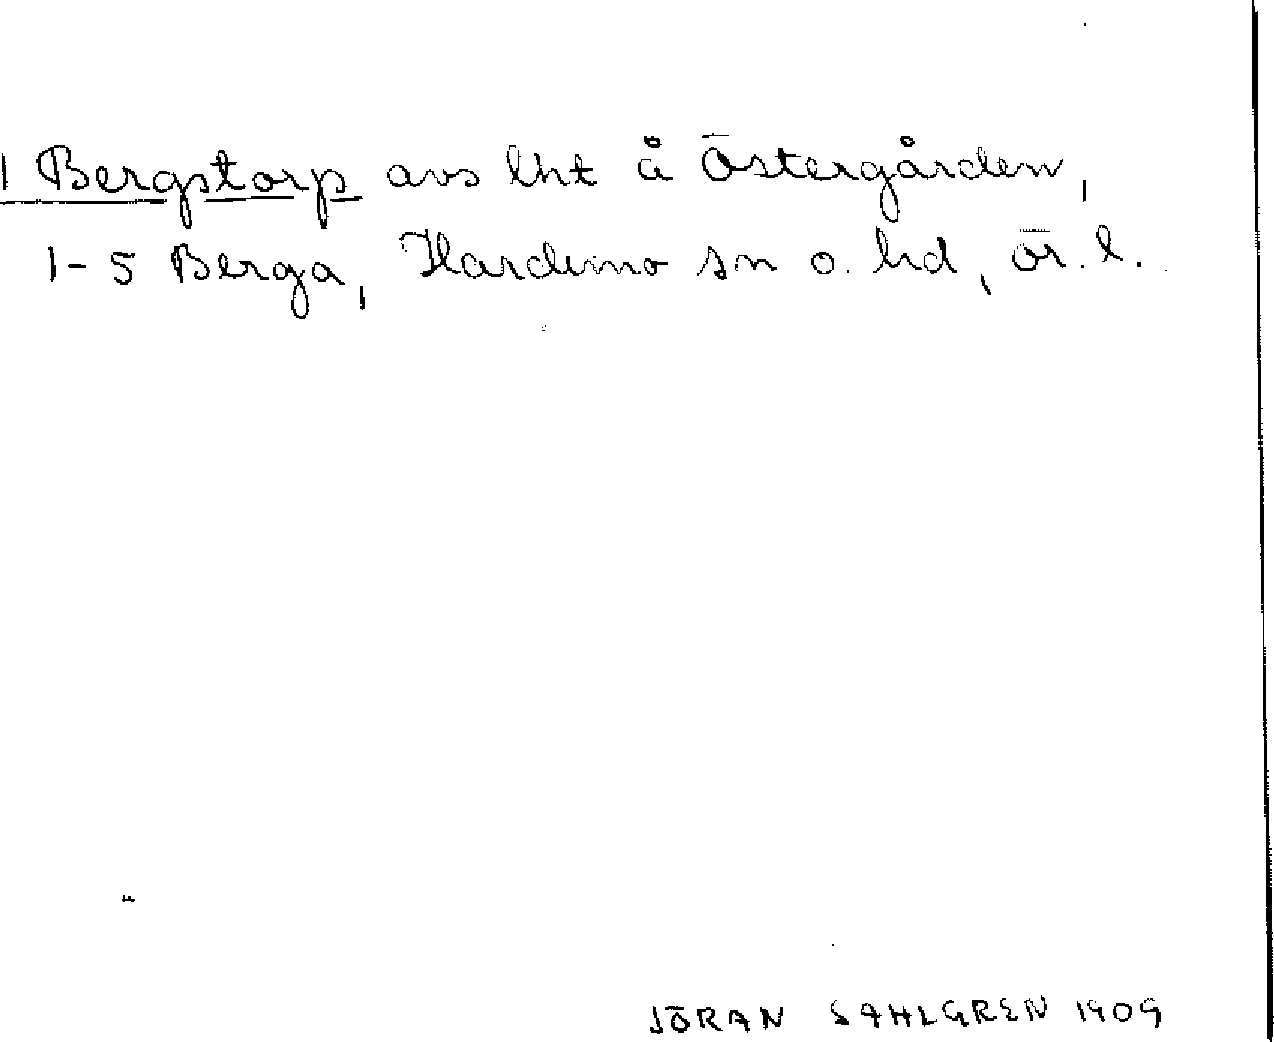 1 Bergstorp avs lht å Östergården,
1-5 Berga, Hardemo sn o. hd, ör. l.
JÖRAN SAHLGREN 1909